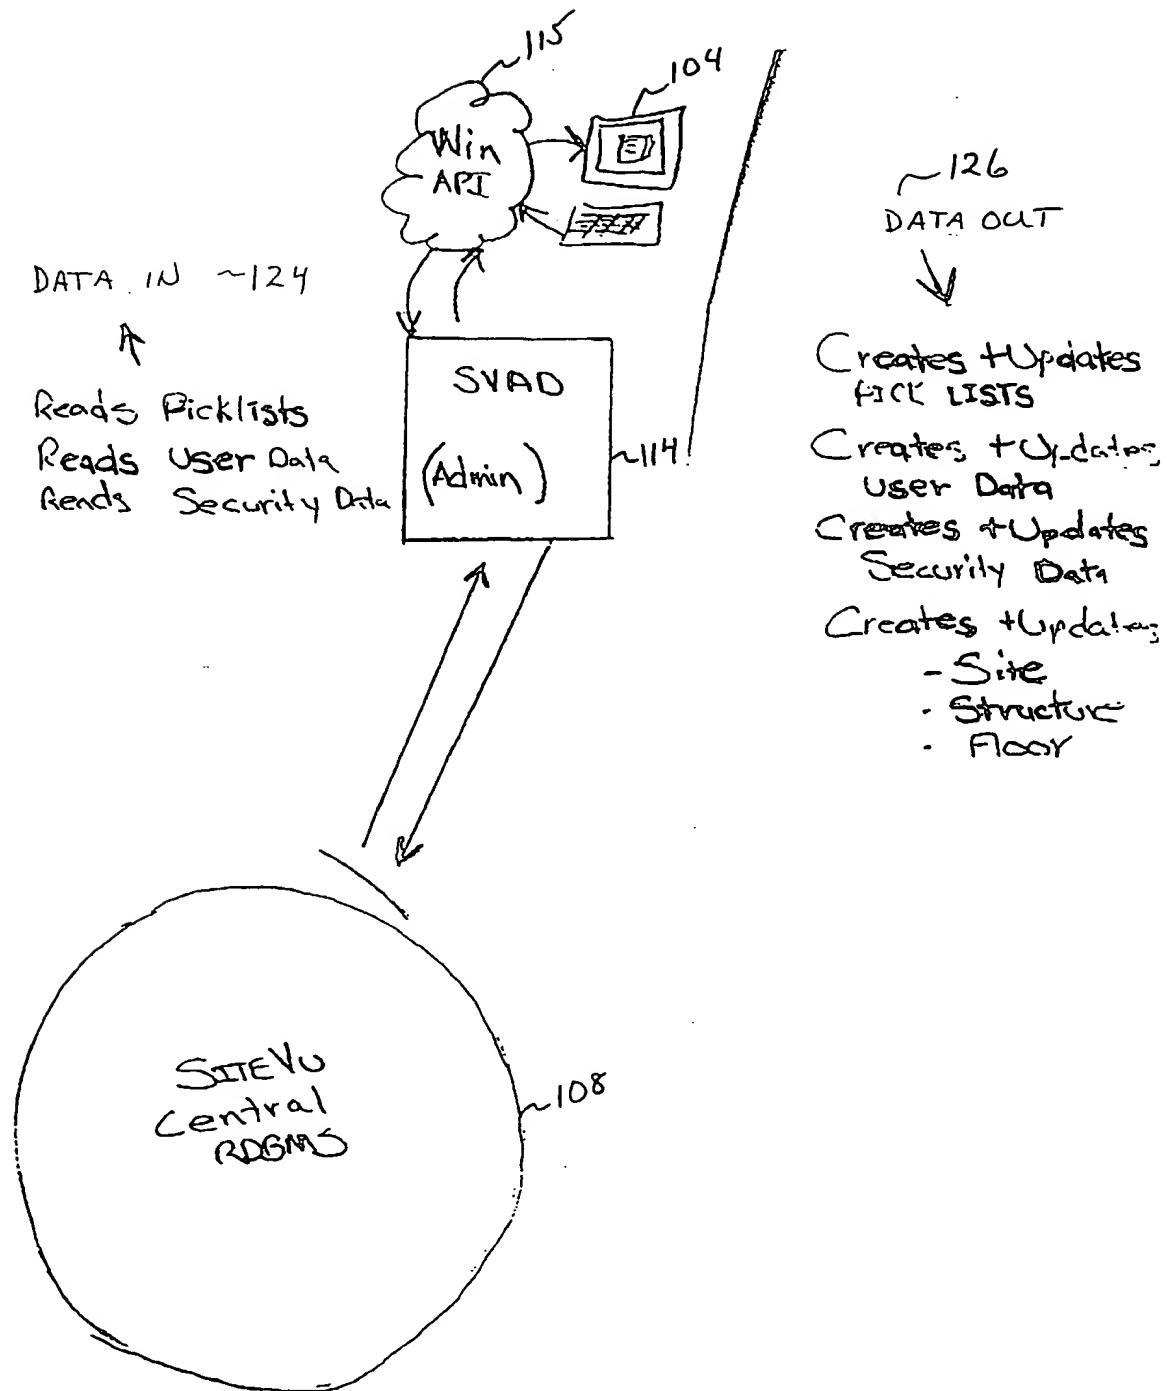 ~115
~104
Win
API
~126
DATA OUT
DATA IN ~124
Reads Picklists
Reads User Data
Reads Security Data
SVAD
(Admin)
~114
Creates + Updates
PICK LISTS
Creates + Updates
User Data
Creates + Updates
Security Data
Creates + Updates
- Site
- Structure
- Floor
SITEVU
Central
RDBMS
~108